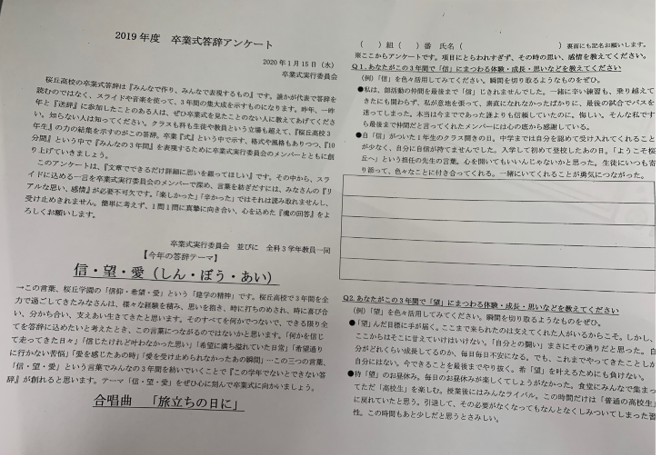 2019年度 卒業式答辞アンケート
2020年1月15日（水）
卒業式実行委員会
桜丘高校の卒業式答辞は『みんなで作り、みんなで表現するもの』です。誰かが代表で答辞を
読むのではなく、スライドや音楽を使って、3年間の集大成を示すものになります。昨年、一昨
年と『送辞』に参加したことのある人は、ぜひ卒業式を見たことのない人に教えてあげてくださ
い。知らない人は知ってください。クラスも科も生徒や教員という立場も超えて、『桜丘高校3
年生』の力の結集を示すのがこの答辞。卒業『式』という中で示す、格式や風格もありつつ、『10
分間』という中で『みんなの3年間』を表現するために卒業式実行委員会のメンバーとともに創
り上げていきましょう。
このアンケートは、『文章でできるだけ詳細に思いを綴ってほしい』です。その中から、スラ
イドに込める一言を卒業式実行委員会のメンバーで深め、言葉を紡ぎだすには、みなさんの『リ
アルな思い、感情』が必要不可欠です。「楽しかった」「辛かった」ではそれは読み取れませんし、
受け止めきれません。簡単に考えず、1問1問に真摯に向き合い、心を込めた『魂の回答』をよ
ろしくお願いします。
卒業式実行委員会 並びに 全科3学年教員一同
【今年の答辞テーマ】
信・望・愛（しん・ぼう・あい）
→この言葉、桜丘学園の「信仰・希望・愛」という「建学の精神」です。桜丘高校で3年間を全
力で過ごしてきたみなさんは、様々な経験を積み、思いを抱き、時に打ちのめされ、時に喜び合
い、分かち合い、支えあい生きてきたと思います。そのすべてを何かでつないで、できる限り全
てを答辞に込めたいと考えたとき、この言葉につながるのではないかと思います。「何かを信じ
て走ってきた日々」「信じたけれど叶わなかった思い」「希望に満ち溢れていた日常」「希望通り
に行かない苦悩」「愛を感じたあの時」「愛を受け止められなかったあの瞬間」…この三つの言葉、
「信・望・愛」という言葉でみんなの3年間を紡いでいくことで『この学年でないとできない答
辞』が創れると思います。テーマ「信・望・愛」をぜひ心に刻んで卒業式に向かいましょう。
合唱曲 「旅立ちの日に」
（ ）組（ ）番 氏名（ ） 裏面にも記名お願いします。
※ここからアンケートです。項目にとらわれすぎず、その時の思い、感情を教えてください。
Q1.あなたがこの3年間で「信」にまつわる体験・成長・思いなどを教えてください
（例）「信」を色々活用してみてください。瞬間を切り取るようなものをぜひ。
●私は、部活動の仲間を最後まで「信」じきれませんでした。一緒に辛い練習も、乗り越えて
きたにも関わらず、私が意地を張って、素直になれなかったばかりに、最後の試合でパスを
迷ってしまった。本当は今まであった誰よりも信頼していたのに、悔しい。そんな私です
ら最後まで仲間だと言ってくれたメンバーには心の底から感謝している。
●自「信」がついた1年生のクラス開きの日。中学までは自分を認めて受け入れてくれること
が少なく、自分に自信が持てませんでした。入学して初めて登校したあの日。「ようこそ桜
丘へ」という担任の先生の言葉。心を開いてもいいんじゃないかと思った。生徒にいつも寄
り添って、色々なことに付き合ってくれる。一緒にいてくれることが勇気につながった。
Q2.あなたがこの3年間で「望」にまつわる体験・成長・思いなどを教えてください
（例）「望」を色々活用してみてください。瞬間を切り取るようなものをぜひ。
●「望」んだ目標に手が届く。ここまで来られたのは支えてくれた人がいるからこそ。しかし、
ここからはそこに甘えていけはいけない。「自分との闘い」まさにその通りだと思った。自
分がどれくらい成長してるのか、毎日毎日不安になる。でも、これまでやってきたことしか
自分にはない。今できることを最後までやり抜く。希「望」を叶えるためにも負けない。
●待「望」のお昼休み。毎日のお昼休みが楽しくてしょうがなかった。食堂にみんなで集まっ
てただ「高校生」を楽しむ。授業後にはみんなライバル。この時間だけは「普通の高校生」
に戻れていたと思う。引退して、その必要がなくなってもなんとなくしみついてしまった習
性。この時間もあと少しだと思うとさみしい。